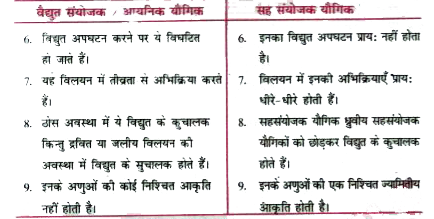 वैद्युत संयोजक / आयनिक यौगिक
6. विद्युत अपघटन करने पर ये विघटित
हो जाते हैं।
7. यह विलयन में तीव्रता से अभिक्रिया करते
हैं।
8. ठोस अवस्था में ये विद्युत के कुचालक
किन्तु द्रवित या जलीय विलयन की
अवस्था में विद्युत के सुचालक होते हैं।
9. इनके अणुओं की कोई निश्चित आकृति
नहीं होती है।
सह संयोजक यौगिक
6. इनका विद्युत अपघटन प्राय: नहीं होता
है।
7. विलयन में इनकी अभिक्रियाएँ प्राय:
धीरे-धीरे होती हैं।
8. सहसंयोजक यौगिक ध्रुवीय सहसंयोजक
यौगिकों को छोड़कर विद्युत के कुचालक
होते हैं।
9. इनके अणुओं की एक निश्चित ज्यामितीय
आकृति होती है।